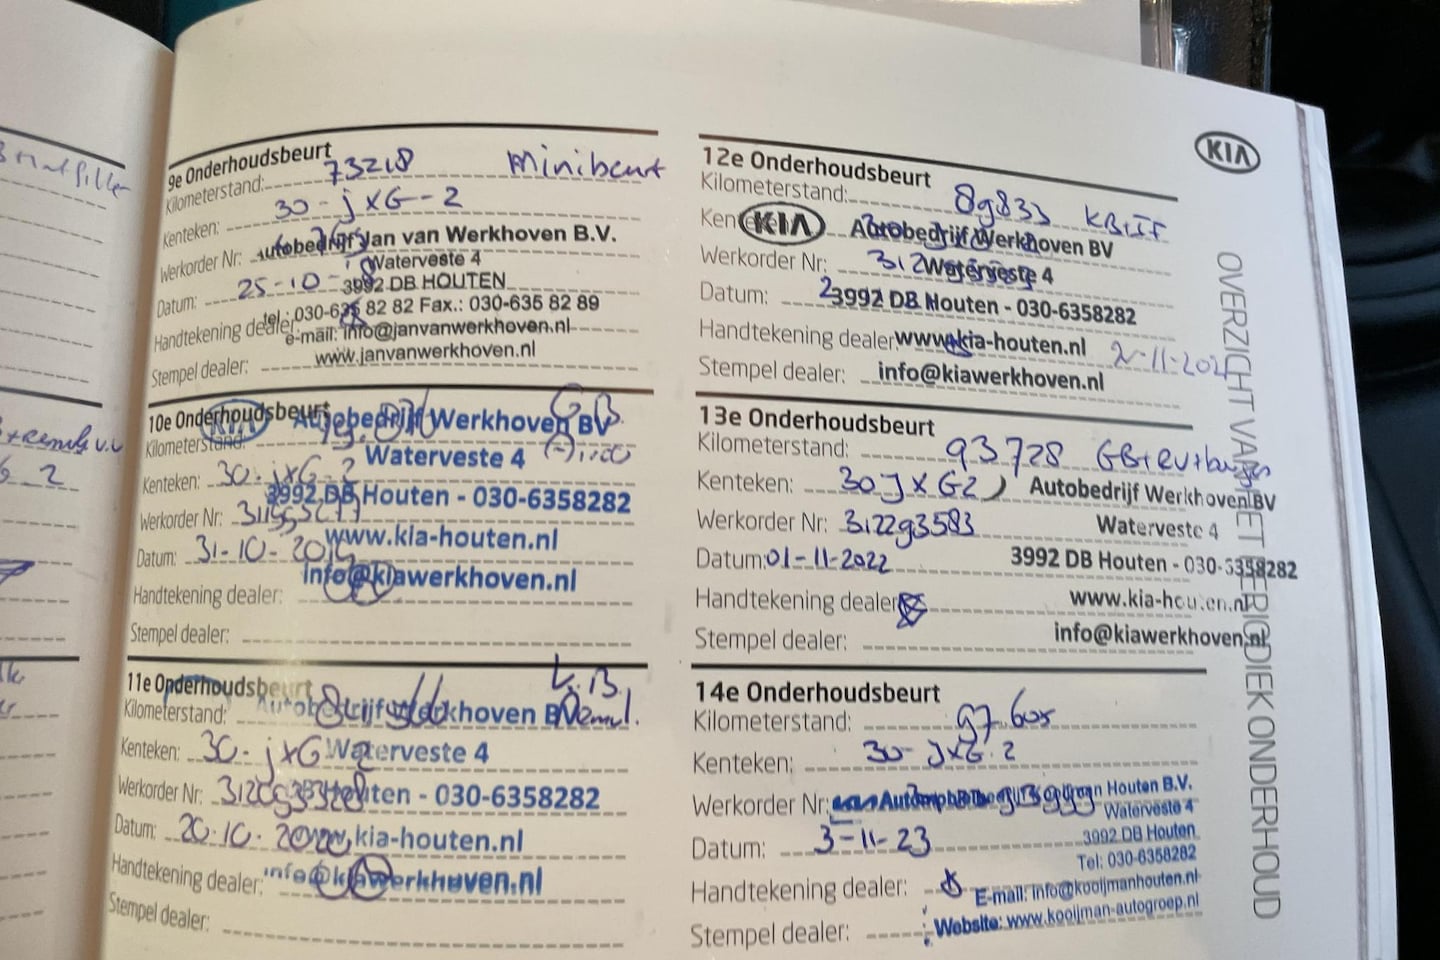 9e Onderhoudsbeurt
Kilometerstand: 73218 Minibeurt
Kenteken: 30-jXG-2
Autobedrijf Jan van Werkhoven B.V.
Werkorder Nr:
Waterveste 4
Datum: 25-10-
3992 DB HOUTEN
tel.: 030-635 82 82 Fax.: 030-635 82 89
Handtekening dealer:
e-mail: info@janvanwerkhoven.nl
Stempel dealer:
www.janvanwerkhoven.nl
10e Onderhoudsbeurt
KIA Autobedrijf Werkhoven BV
GB
Kilometerstand:
Waterveste 4
Kenteken: 30-jxG-2
3992 DB Houten - 030-6358282
Werkorder Nr:
www.kia-houten.nl
Datum: 31-10-
info@kiawerkhoven.nl
Handtekening dealer:
Stempel dealer:
11e Onderhoudsbeurt
Autobedrijf Werkhoven BV
Kilometerstand:
Kenteken: 30-jxG 2
Waterveste 4
Werkorder Nr:
Houten - 030-6358282
Datum: 20-10-2020
www.kia-houten.nl
Handtekening dealer:
info@kiawerkhoven.nl
Stempel dealer:
12e Onderhoudsbeurt
Kilometerstand: 89833
Kenteken:
KIA Autobedrijf Werkhoven BV
Werkorder Nr: 312
Waterveste 4
Datum:
3992 DB Houten - 030-6358282
Handtekening dealer:
www.kia-houten.nl
2-11-202
Stempel dealer:
info@kiawerkhoven.nl
13e Onderhoudsbeurt
Kilometerstand: 93728
Kenteken: 30JXG2
Autobedrijf Werkhoven BV
Werkorder Nr: 312293583
Waterveste 4
Datum: 01-11-2022
3992 DB Houten - 030-6358282
Handtekening dealer:
www.kia-houten.nl
Stempel dealer:
info@kiawerkhoven.nl
14e Onderhoudsbeurt
Kilometerstand: 97.605
Kenteken: 30-JXG-2
Werkorder Nr:
Houten B.V.
Waterveste 4
Datum: 3-11-23
3992 DB Houten
Tel: 030-6358282
Handtekening dealer:
E-mail: info@kooijmanhouten.nl
Stempel dealer:
Website: www.kooijman-autogroep.nl
KIA
OVERZICHT VAN HET PERIODIEK ONDERHOUD